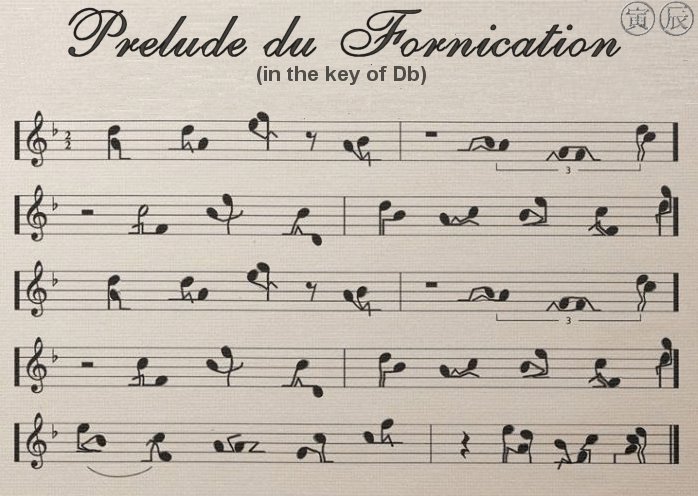 Prelude du Fornication
寅 辰
(in the key of Db)
2
2
3
3